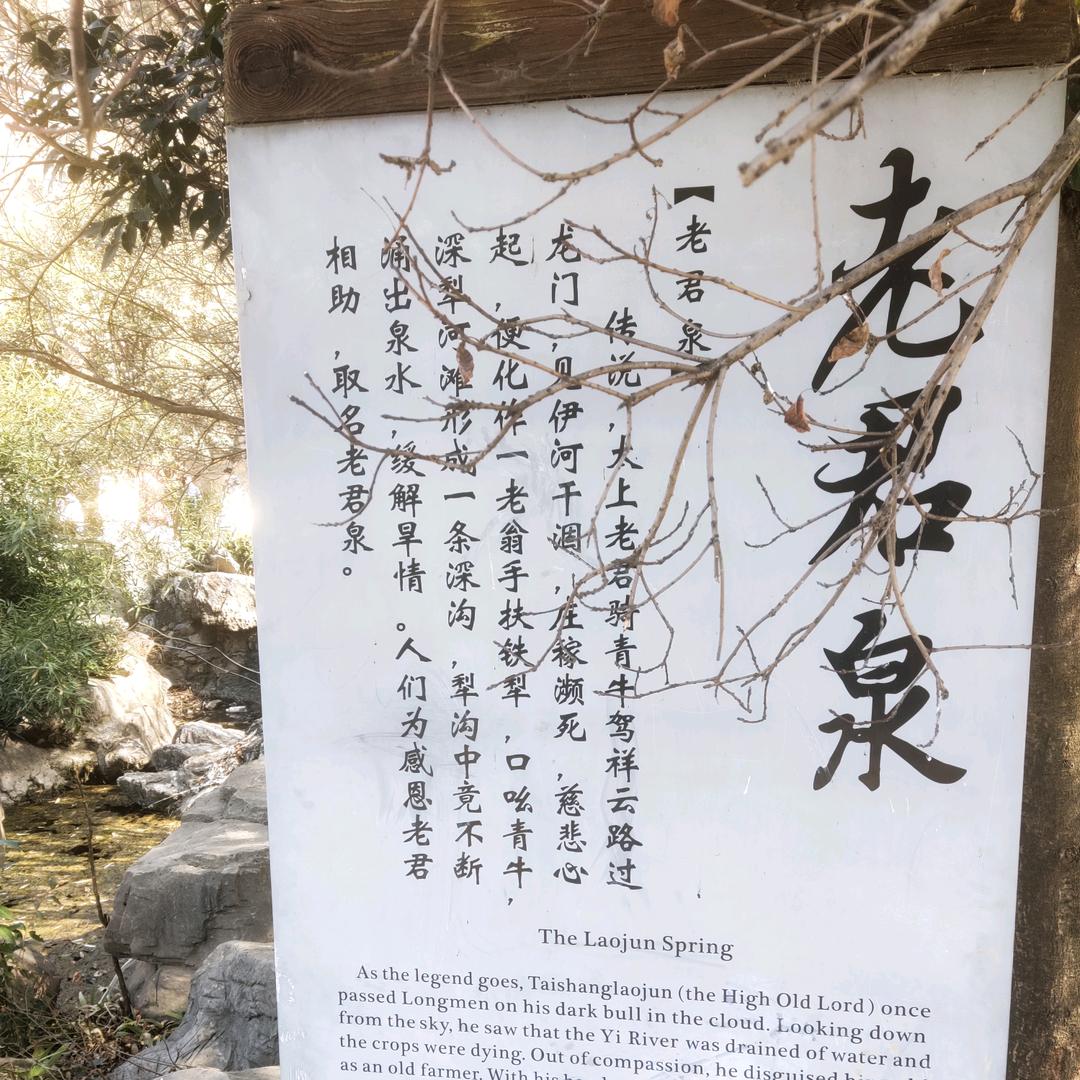 老君泉
【老君泉
传说，太上老君骑青牛驾祥云路过
龙门，见伊河干涸，庄稼濒死，慈悲心
起，便化作一老翁手扶铁犁，口吆青牛，
深犁河滩形成一条深沟，犁沟中竟不断
涌出泉水，缓解旱情。人们为感恩老君
相助，取名老君泉。
The Laojun Spring
As the legend goes, Taishanglaojun (the High Old Lord) once
passed Longmen on his dark bull in the cloud. Looking down
from the sky, he saw that the Yi River was drained of water and
the crops were dying. Out of compassion, he disguised
as an old farmer. With his